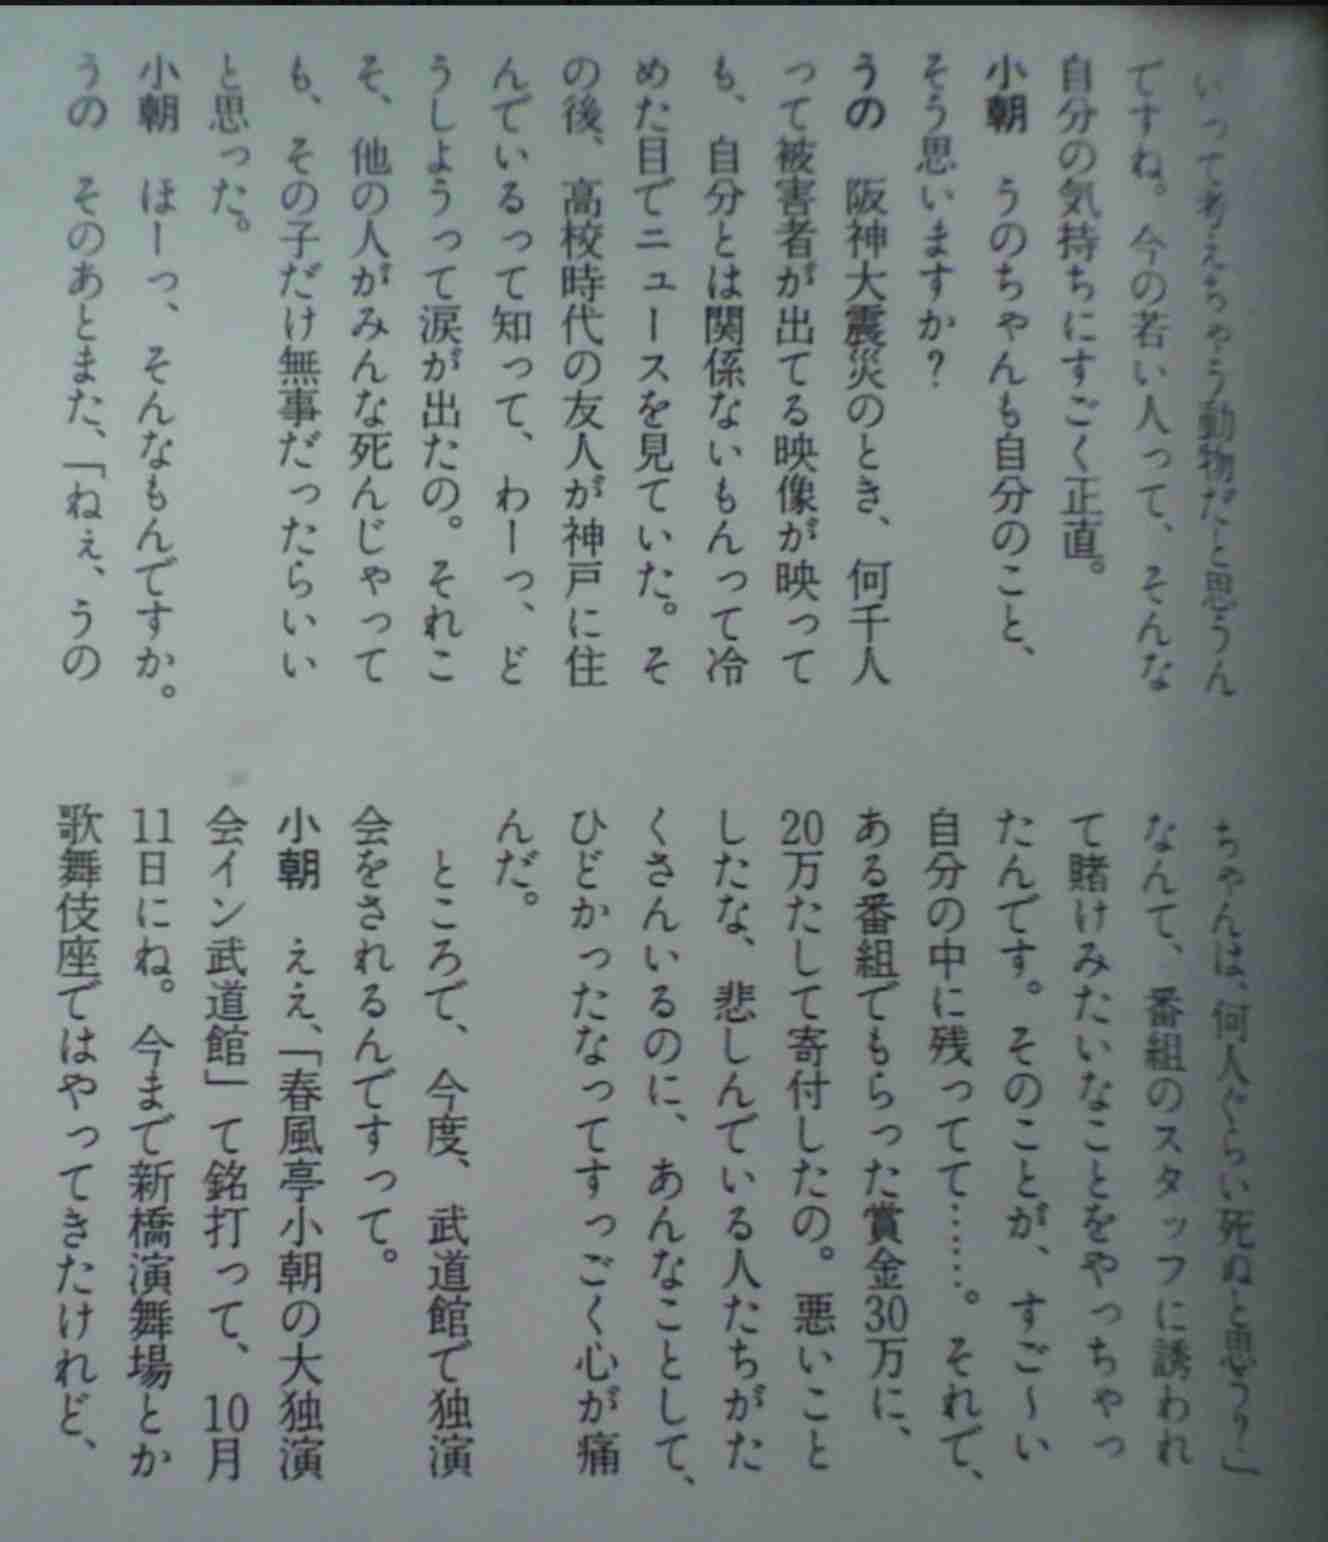 いって考えちゃう動物だと思うん
ですね。今の若い人って、そんな
自分の気持ちにすごく正直。
小朝　うのちゃんも自分のこと、
そう思いますか？
うの　阪神大震災のとき、何千人
って被害者が出てる映像が映って
も、自分とは関係ないもんって冷
めた目でニュースを見ていた。そ
の後、高校時代の友人が神戸に住
んでいるって知って、わーっ、ど
うしようって涙が出たの。それこ
そ、他の人がみんな死んじゃって
も、その子だけ無事だったらいい
と思った。
小朝　ほーっ、そんなもんですか。
うの　そのあとまた、「ねぇ、うの
ちゃんは、何人ぐらい死ぬと思う？」
なんて、番組のスタッフに誘われ
て賭けみたいなことをやっちゃっ
たんです。そのことが、すご〜い
自分の中に残ってて……。それで、
ある番組でもらった賞金30万に、
20万たして寄付したの。悪いこと
したな、悲しんでいる人たちがた
くさんいるのに、あんなことして、
ひどかったなってすっごく心が痛
んだ。
　ところで、今度、武道館で独演
会をされるんですって。
小朝　ええ、「春風亭小朝の大独演
会イン武道館」て銘打って、10月
11日にね。今まで新橋演舞場とか
歌舞伎座ではやってきたけれど、